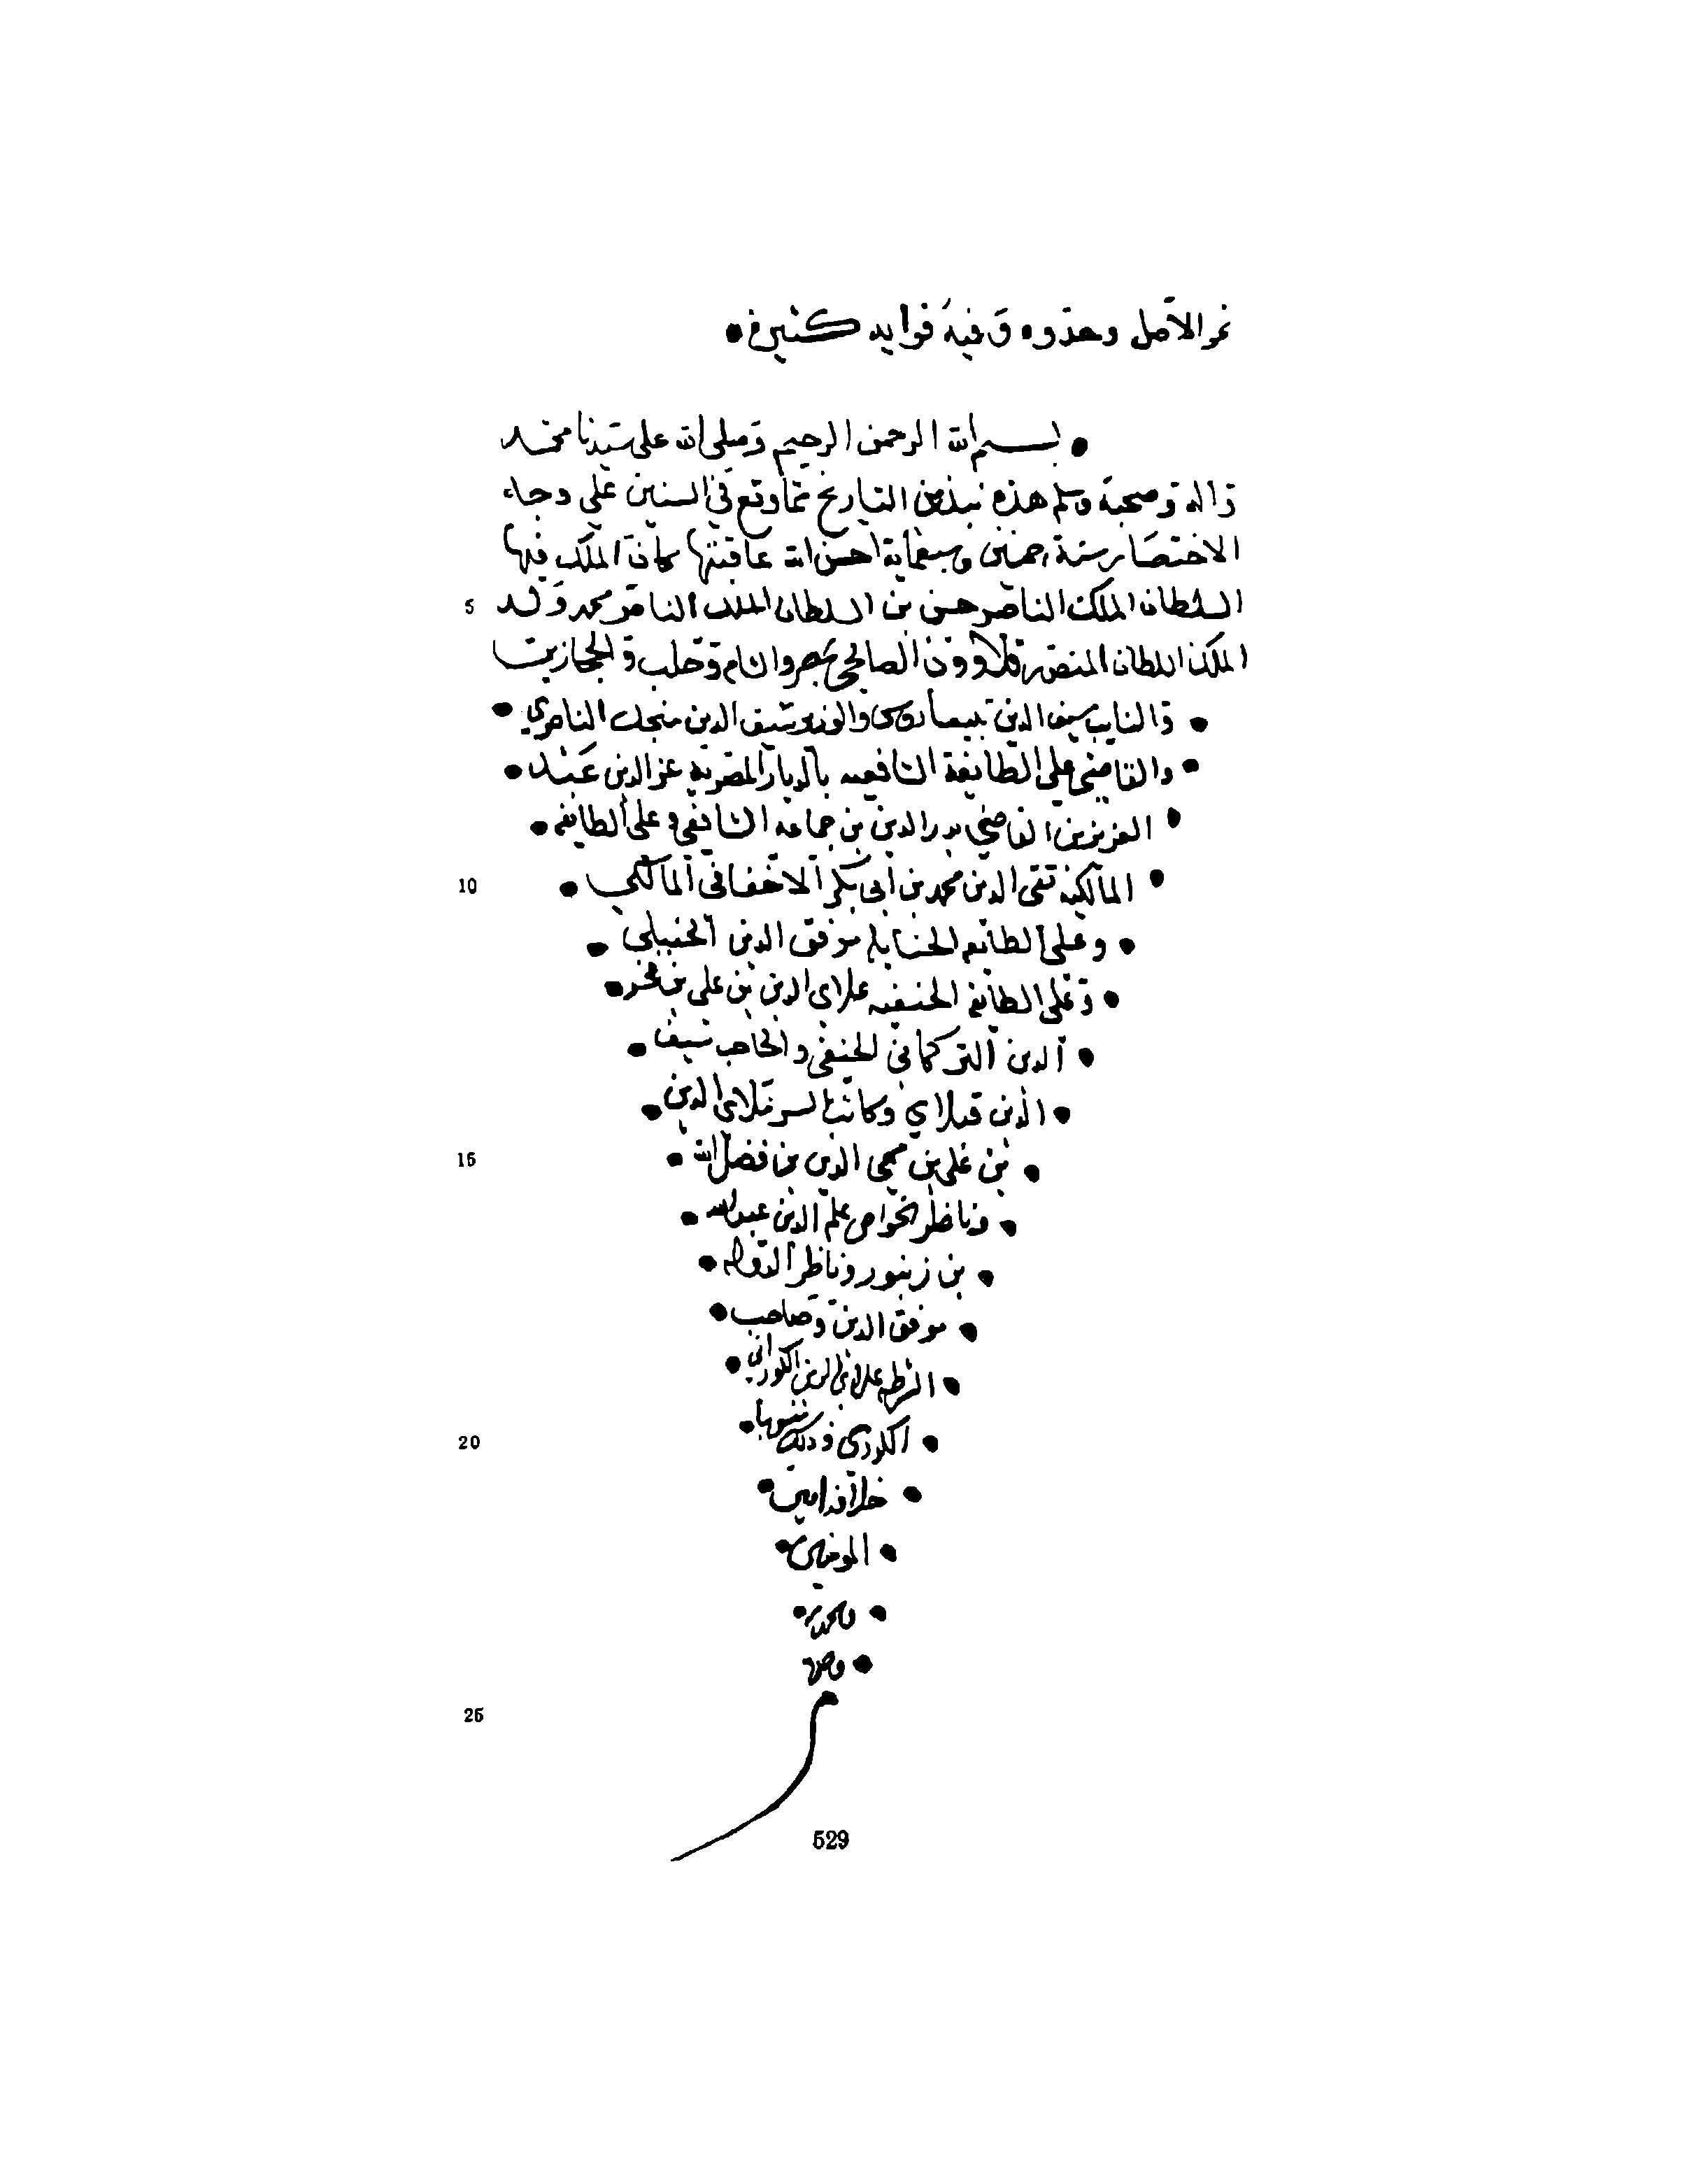 الاصل وحذوه وفيه فوايد كثيرة
بسم الله الرحمن الرحيم وصلى الله على سيدنا محمد
واله وصحبه وسلم هذه نبذ من التاريخ مما وقع في السنين على وجاء
الاختصار سنة خمسين وسبعماية احسن الله عاقبتها كان الملك فيها
5 السلطان الملك الناصر حسن بن السلطان الملك الناصر محمد ولد
الملك السلطان المنصور قلاوون الصالحي بمصر والشام وحلب والحجازيت
والنايب سيف الدين بيبغا روس والوزير سيف الدين منجك الناصري
والقاضي على الطايفة الشافعيه بالديار المصريه عز الدين عبد
العزيز بن القاضي بدر الدين بن جماعه الشافعي وعلى الطايفه
10 المالكيه تقى الدين محمد بن أبى بكر الاخفانى المالكي
وعلى الطايفه الحنابله موفق الدين الحنبلي
وعلى الطايفه الحنفيه علاى الدين بن على بن فخر
الدين التركمانى الحنفى والحاجب سيف
الدين قبلاي وكاتب السر علاى الدين
15 بن على بن محى الدين بن فضل الله
وناظر الخواص علم الدين عبد الله
بن زنبور وناظر الدوله
موفق الدين وصاحب
الشرطه علاى الدين الكورانى
20 الكردى وذلك
خلافة امير
المومنين
25
529